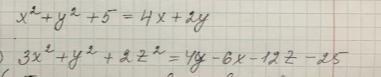 x² + y² + 5 = 4x + 2y
) 3x² + y² + 2z² = 4y - 6x - 12z - 25